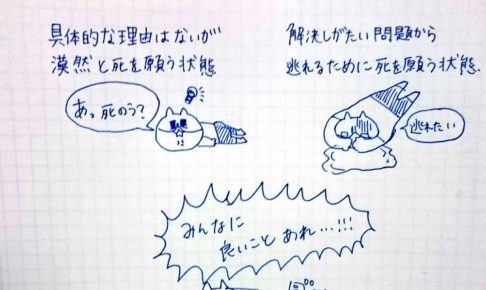 具体的な理由はないが
漠然と死を願う状態
あっ死のう?
解決しがたい問題から
逃れるために死を願う状態
逃れたい
みんなに
良いことあれ…!!!